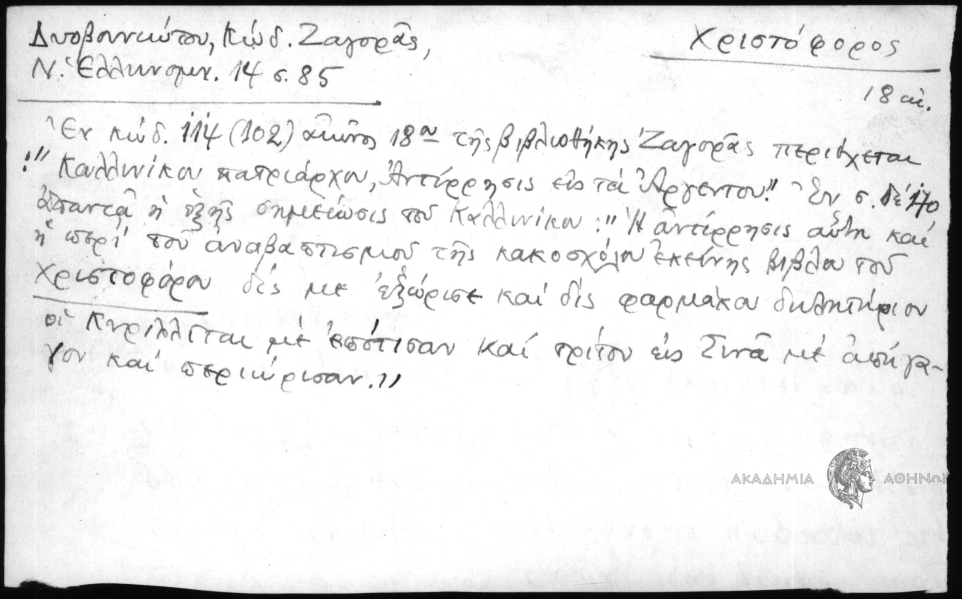 Δυοβουνιώτου, Κώδ. Ζαγορᾶς,
Χριστόφορος
Ν. Ἑλληνομν. 14 σ. 85
18 αἰ.
Ἐν κώδ. 114 (102) αἰῶνος 18ου τῆς βιβλιοθήκης Ζαγορᾶς περιέχεται
:" Καλλινίκου πατριάρχου, Ἀντίρρησις εἰς τὰ Ἀργέντου." Ἐν σ. δέ 170
ἀπαντᾷ ἡ ἑξῆς σημείωσις τοῦ Καλλινίκου: "Ἡ ἀντίρρησις αὕτη καὶ
ἡ περὶ τοῦ ἀναβαπτισμοῦ τῆς κακοσχόλου ἐκείνης βίβλου τοῦ
Χριστοφόρου δίς με ἐξώρισε καὶ δὶς φαρμάκου δηλητήριον
οἱ Κυριλλῖται μὲ ἐπότισαν καὶ τρίτον εἰς Σινᾶ μὲ ἀπήγα-
γον καὶ περιώρισαν."
ΑΚΑΔΗΜΙΑ ΑΘΗΝΩΝ